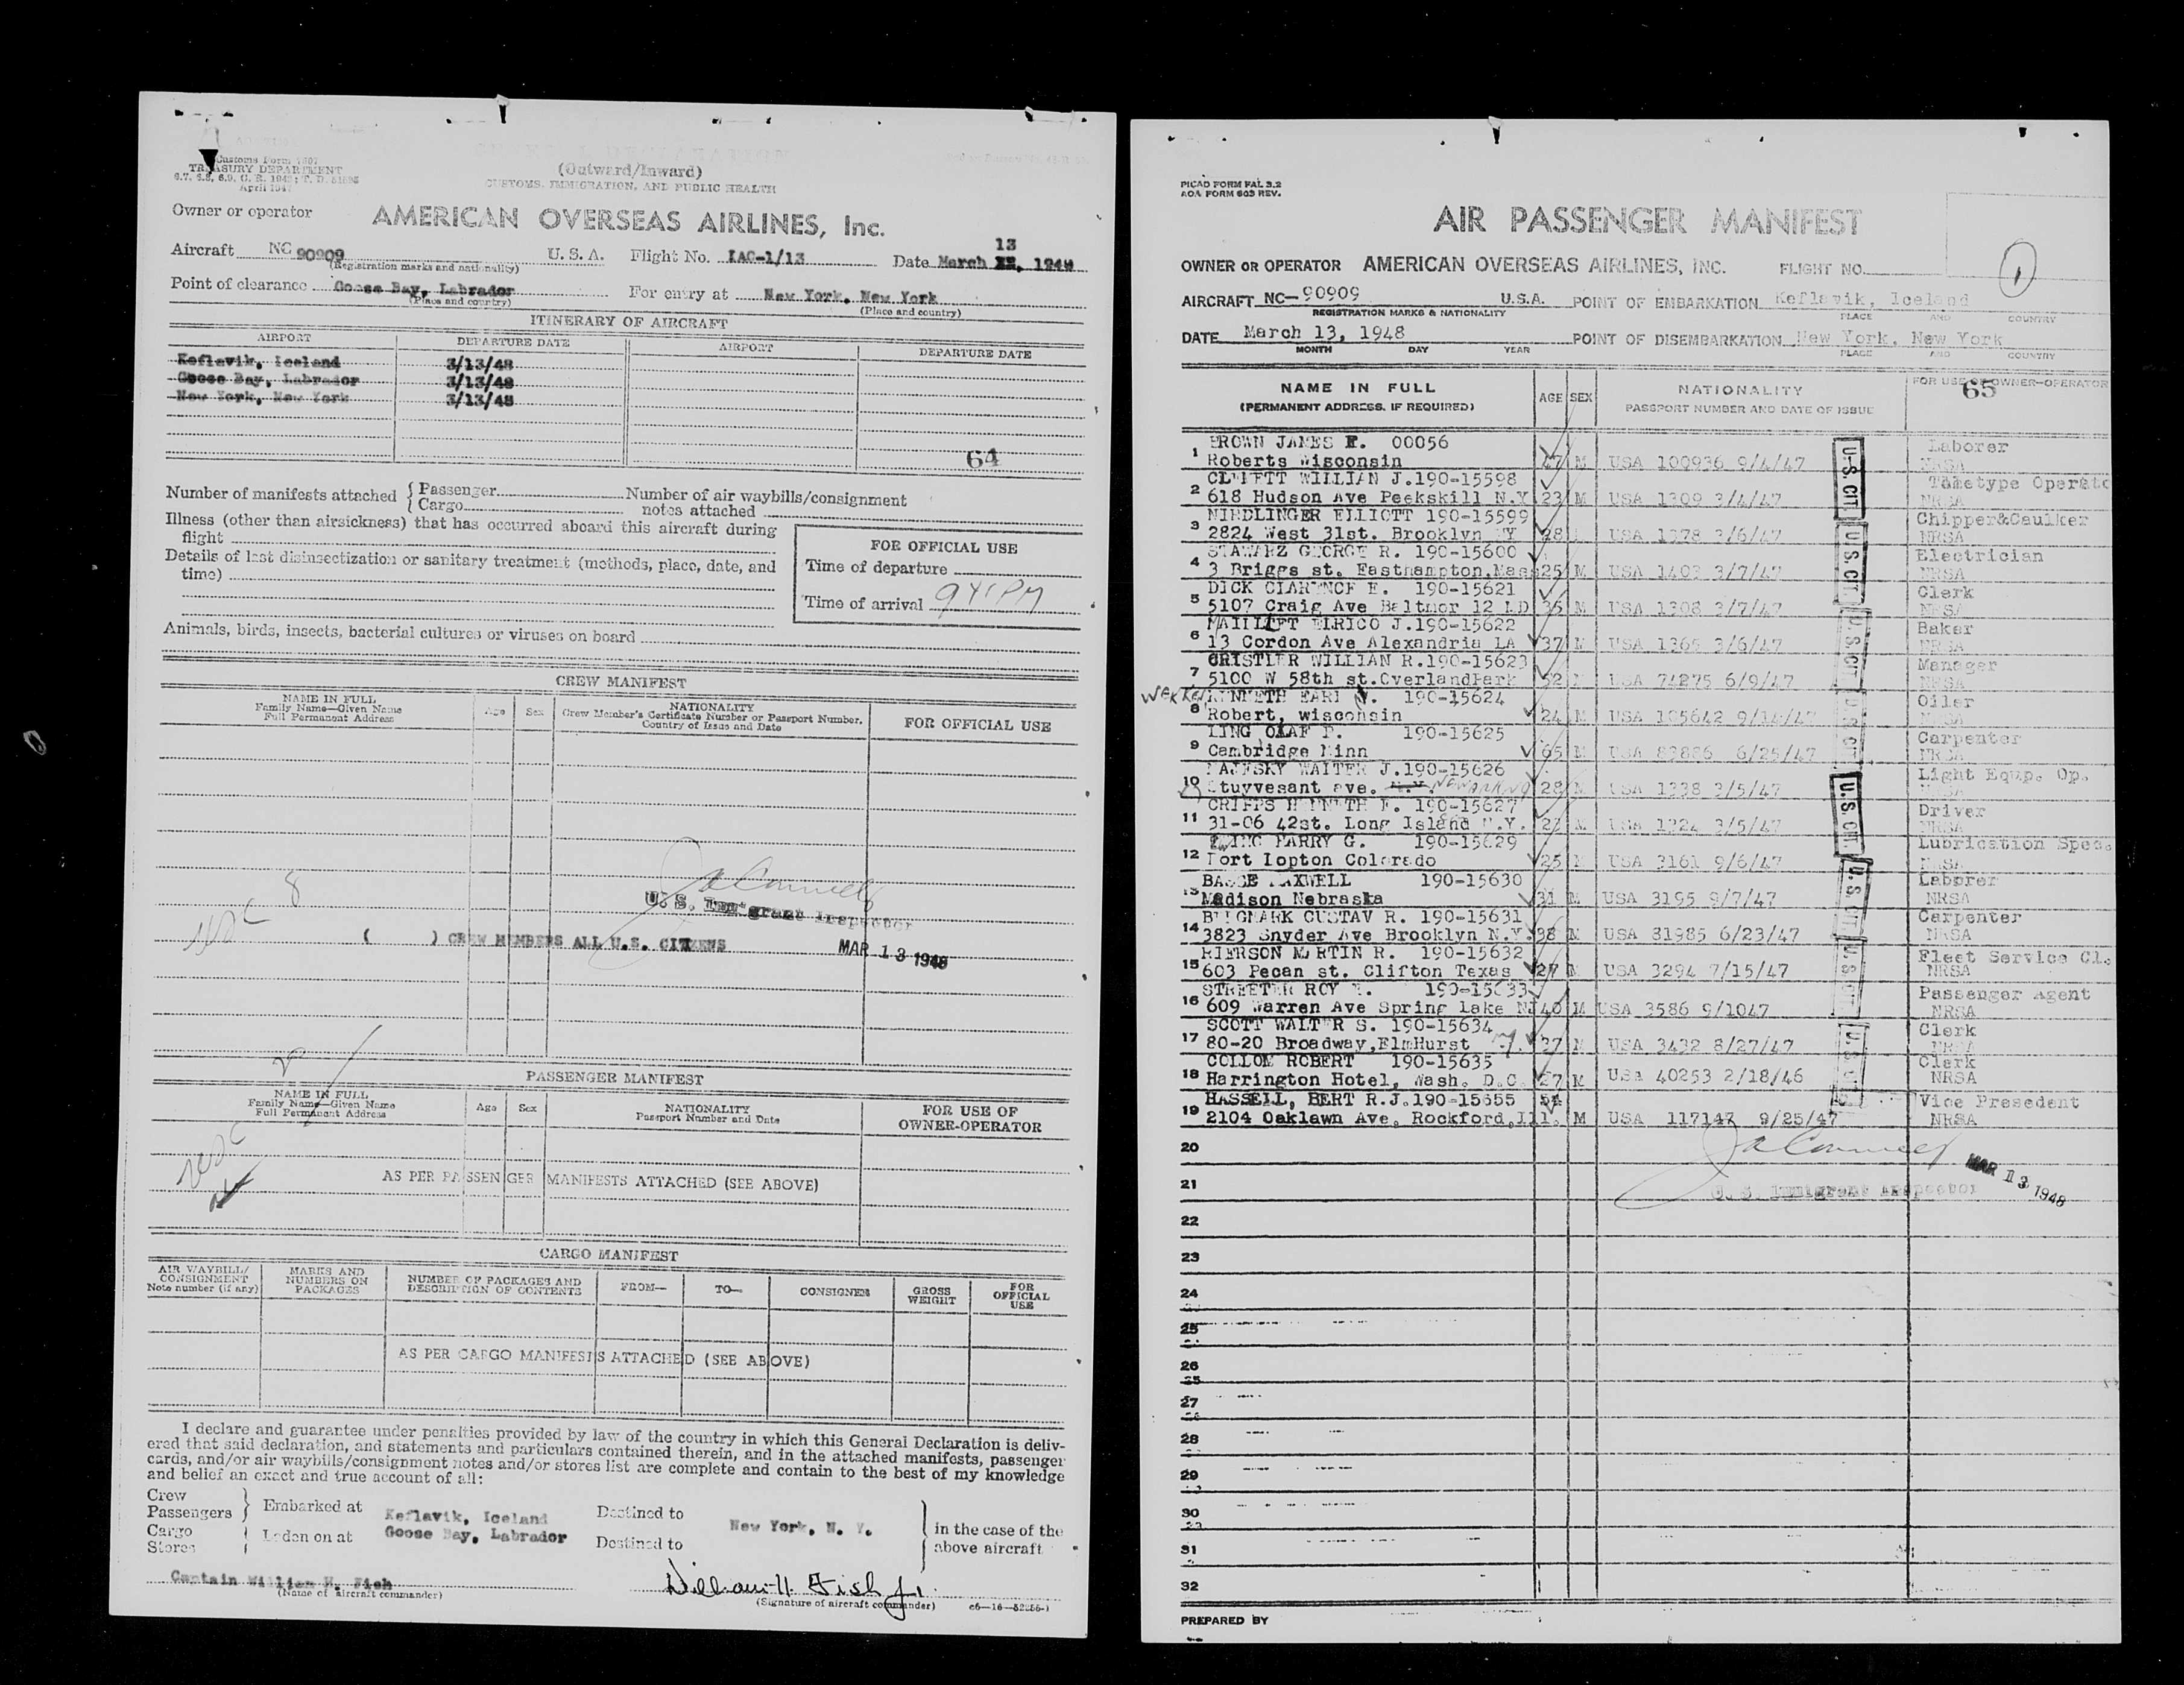 Customs Form 1507
TREASURY DEPARTMENT
April 1947
(Outward/Inward)
CUSTOMS, IMMIGRATION, AND PUBLIC HEALTH
Owner or operator AMERICAN OVERSEAS AIRLINES, Inc.
13
Aircraft NC 90909 U. S. A. Flight No. IAC-1/13 Date March 1948
(Registration marks and nationality)
Point of clearance Goose Bay, Labrador For entry at New York, New York
(Place and country) (Place and country)
ITINERARY OF AIRCRAFT
AIRPORT DEPARTURE DATE AIRPORT DEPARTURE DATE
Keflavik, Iceland 3/13/48
Goose Bay, Labrador 3/13/48
New York, New York 3/13/48
64
Number of manifests attached { Passenger Number of air waybills/consignment
Cargo notes attached
Illness (other than airsickness) that has occurred aboard this aircraft during
flight
Details of last disinsectization or sanitary treatment (methods, place, date, and
time)
FOR OFFICIAL USE
Time of departure
Time of arrival
Animals, birds, insects, bacterial cultures or viruses on board
CREW MANIFEST
NAME IN FULL
Family Name—Given Name
Full Permanent Address
Age Sex
NATIONALITY
Crew Member's Certificate Number or Passport Number,
Country of Issue and Date
FOR OFFICIAL USE
8
U. S. Immigrant Inspector
( ) CREW MEMBERS ALL U.S. CITIZENS MAR 13 1948
PASSENGER MANIFEST
NAME IN FULL
Family Name—Given Name
Full Permanent Address
Age Sex
NATIONALITY
Passport Number and Date
FOR USE OF
OWNER-OPERATOR
AS PER PASSENGER MANIFESTS ATTACHED (SEE ABOVE)
CARGO MANIFEST
AIR WAYBILL/
CONSIGNMENT
Note number (if any)
MARKS AND
NUMBERS ON
PACKAGES
NUMBER OF PACKAGES AND
DESCRIPTION OF CONTENTS
FROM— TO— CONSIGNEE
GROSS
WEIGHT
FOR
OFFICIAL
USE
AS PER CARGO MANIFESTS ATTACHED (SEE ABOVE)
I declare and guarantee under penalties provided by law of the country in which this General Declaration is deliv-
ered that said declaration, and statements and particulars contained therein, and in the attached manifests, passenger
cards, and/or air waybills/consignment notes and/or stores list are complete and contain to the best of my knowledge
and belief an exact and true account of all:
Crew
Passengers } Embarked at Keflavik, Iceland Destined to New York, N. Y. in the case of the
Cargo
Stores Laden on at Goose Bay, Labrador Destined to above aircraft
Captain William H. Fish
(Name of aircraft commander)
William H. Fish Jr.
(Signature of aircraft commander)
PICAO FORM FAL 3.2
AOA FORM 603 REV.
AIR PASSENGER MANIFEST
1
OWNER OR OPERATOR AMERICAN OVERSEAS AIRLINES, INC. FLIGHT NO.
AIRCRAFT NC-90909 U.S.A. POINT OF EMBARKATION Keflavik, Iceland
REGISTRATION MARKS & NATIONALITY PLACE AND COUNTRY
DATE March 13, 1948 POINT OF DISEMBARKATION New York, New York
MONTH DAY YEAR PLACE AND COUNTRY
NAME IN FULL
(PERMANENT ADDRESS, IF REQUIRED)
AGE SEX
NATIONALITY
PASSPORT NUMBER AND DATE OF ISSUE
FOR USE OF OWNER-OPERATOR
65
BROWN JAMES F. 00056 Laborer
1 Roberts Wisconsin 47 M USA 100936 9/4/47 NRSA
WILLIAN J.190-15598
2 618 Hudson Ave Peekskill N.Y 23 M USA 1309 3/4/47 NRSA
NIEDLINGER ELLIOTT 190-15599 Chipper&Caulker
3 2824 West 31st. Brooklyn NY 28 USA 1378 3/6/47 NRSA
STAWARZ GEORGE R. 190-15600 Electrician
4 3 Briggs st. Easthampton,Mass 25 M USA 1403 3/7/47 NRSA
DICK CLARENCE E. 190-15621 Clerk
5 5107 Craig Ave Baltmor 12 MD 35 M USA 1308 3/7/47 NRSA
J.190-15622 Baker
6 13 Cordon Ave Alexandria LA 37 M USA 1365 3/6/47 NRSA
CRISTLER WILLIAN R.190-15623 Manager
7 5100 W 58th st.OverlandPark 32 M USA 74275 6/9/47 NRSA
KENNETH EARL W. 190-15624 Oiler
8 Robert, wisconsin 24 M USA 105642 9/14/47
LING OLAF P. 190-15625 Carpenter
9 Cambridge Minn 65 M USA 83886 6/25/47 NRSA
MAJESKY WALTER J.190-15626 Light Equp. Op.
10 Stuyvesant ave. NEWARK NJ 28 M USA 1338 3/5/47
CRIPPS KENNETH F. 190-15627 Driver
11 31-06 42st. Long Island N.Y. 23 M USA 1324 3/5/47 NRSA
EWING HARRY G. 190-15629 Lubrication Spec.
12 Fort Lopton Colorado 25 M USA 3161 9/6/47 NRSA
BASSE MAXWELL 190-15630 Laborer
13 Madison Nebraska 31 M USA 3195 9/7/47 NRSA
BERGMARK GUSTAV R. 190-15631 Carpenter
14 3823 Snyder Ave Brooklyn N.Y. 38 M USA 81985 6/23/47 NRSA
RIERSON MARTIN R. 190-15632 Fleet Service Cl.
15 603 Pecan st. Clifton Texas 27 M USA 3294 7/15/47 NRSA
STREETER ROY E. 190-15633 Passenger Agent
16 609 Warren Ave Spring Lake NJ 40 M USA 3586 9/1047 NRSA
SCOTT WALTER S. 190-15634 Clerk
17 80-20 Broadway,ElmHurst 37 M USA 3432 8/27/47 NRSA
COLLOM ROBERT 190-15635 Clark
18 Harrington Hotel, Wash. D.C. 27 M USA 40253 2/18/46 NRSA
HASSELL, BERT R.J.190-15655 54 Vice Presedent
19 2104 Oaklawn Ave. Rockford,Ill. M USA 117147 9/25/47 NRSA
U.S. CIT
U.S. CIT
U.S. CIT
U.S. CIT
U.S. CIT.
U.S. CIT
U.S. CIT
U.S. CIT
20
21 U. S. Immigrant Inspector MAR 13 1948
22
23
24
25
26
27
28
29
30
31
32
PREPARED BY